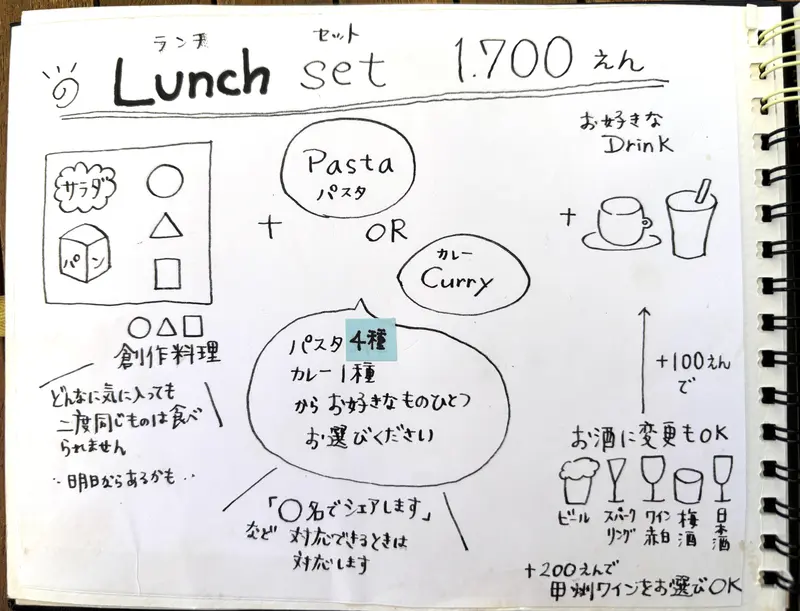 ランチ セット
Lunch set 1.700 えん
サラダ
パン
○△□
創作料理
どんなに気に入っても
二度同じものは食べ
られません
‥明日からあるかも‥
+
Pasta
パスタ
OR
カレー
Curry
パスタ 4種
カレー 1種
から お好きなものひとつ
お選びください
「○名でシェアします」
など 対応できるときは
対応します
お好きな
Drink
+
+100えん
で
お酒に変更もOK
ビール
スパーク
リング
ワイン
赤白
梅酒
日本酒
+200えんで
甲州ワインをお選びOK